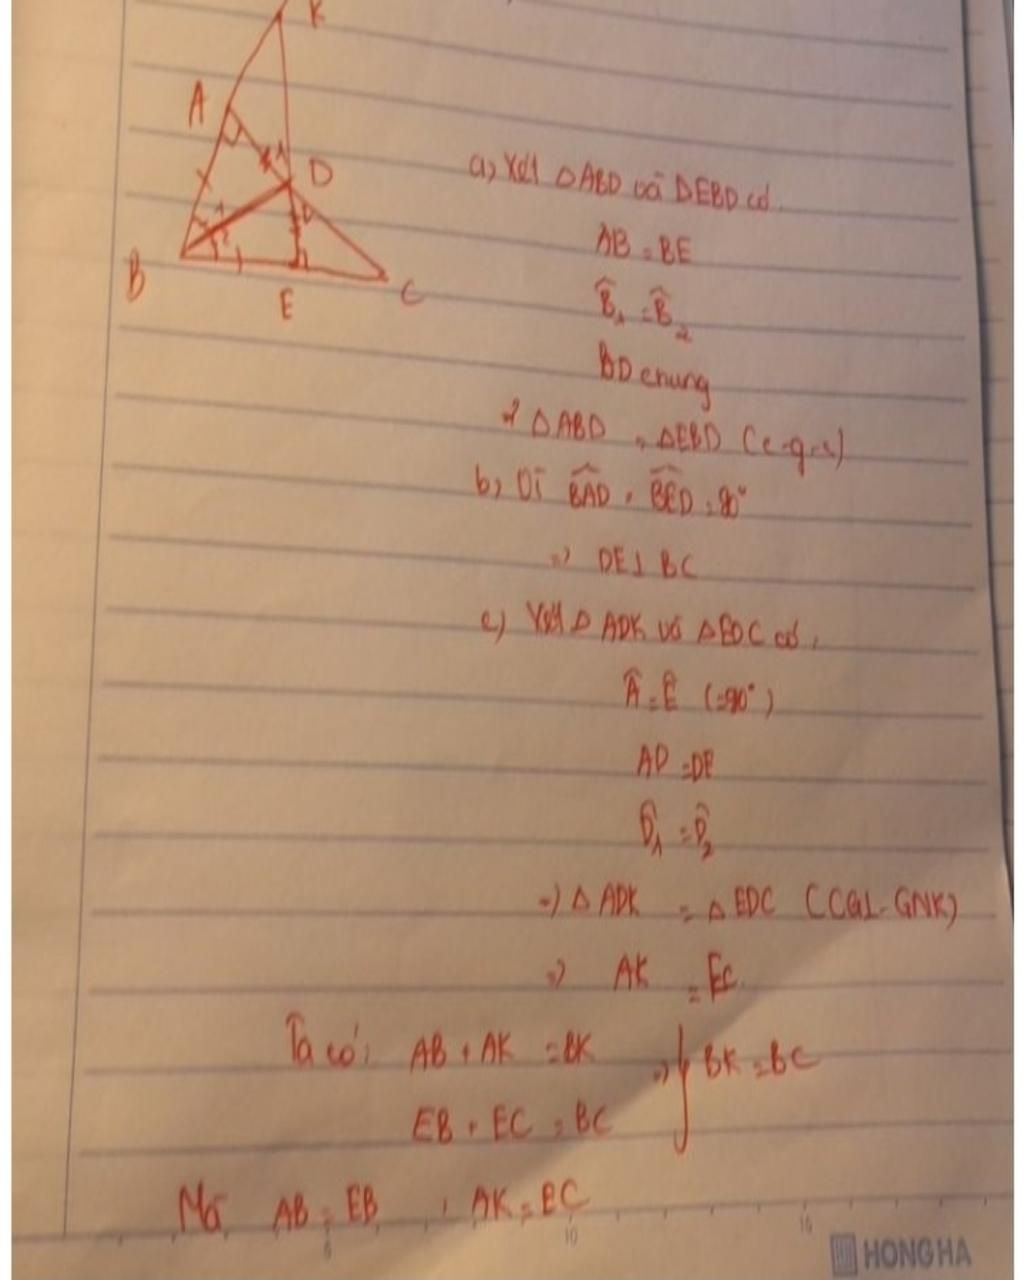 K
A
1
D
2
1
2
B
E
C
a) Xét △ABD và △EBD có
AB = BE
B̂₁ = B̂₂
BD chung
=> △ABD = △EBD (c-g-c)
b) Vì B͡AD = B͡ED = 90°
=> DE⊥BC
c) Xét △ADK và △EDC có:
Â = Ê (=90°)
AD = DE
D̂₁ = D̂₂
=> △ADK = △EDC (CGV-GNK)
=> AK = EC
Ta có: AB + AK = BK
=> BK = BC
EB + EC = BC
Mà AB = EB , AK = EC
5
10
15
HONG HA